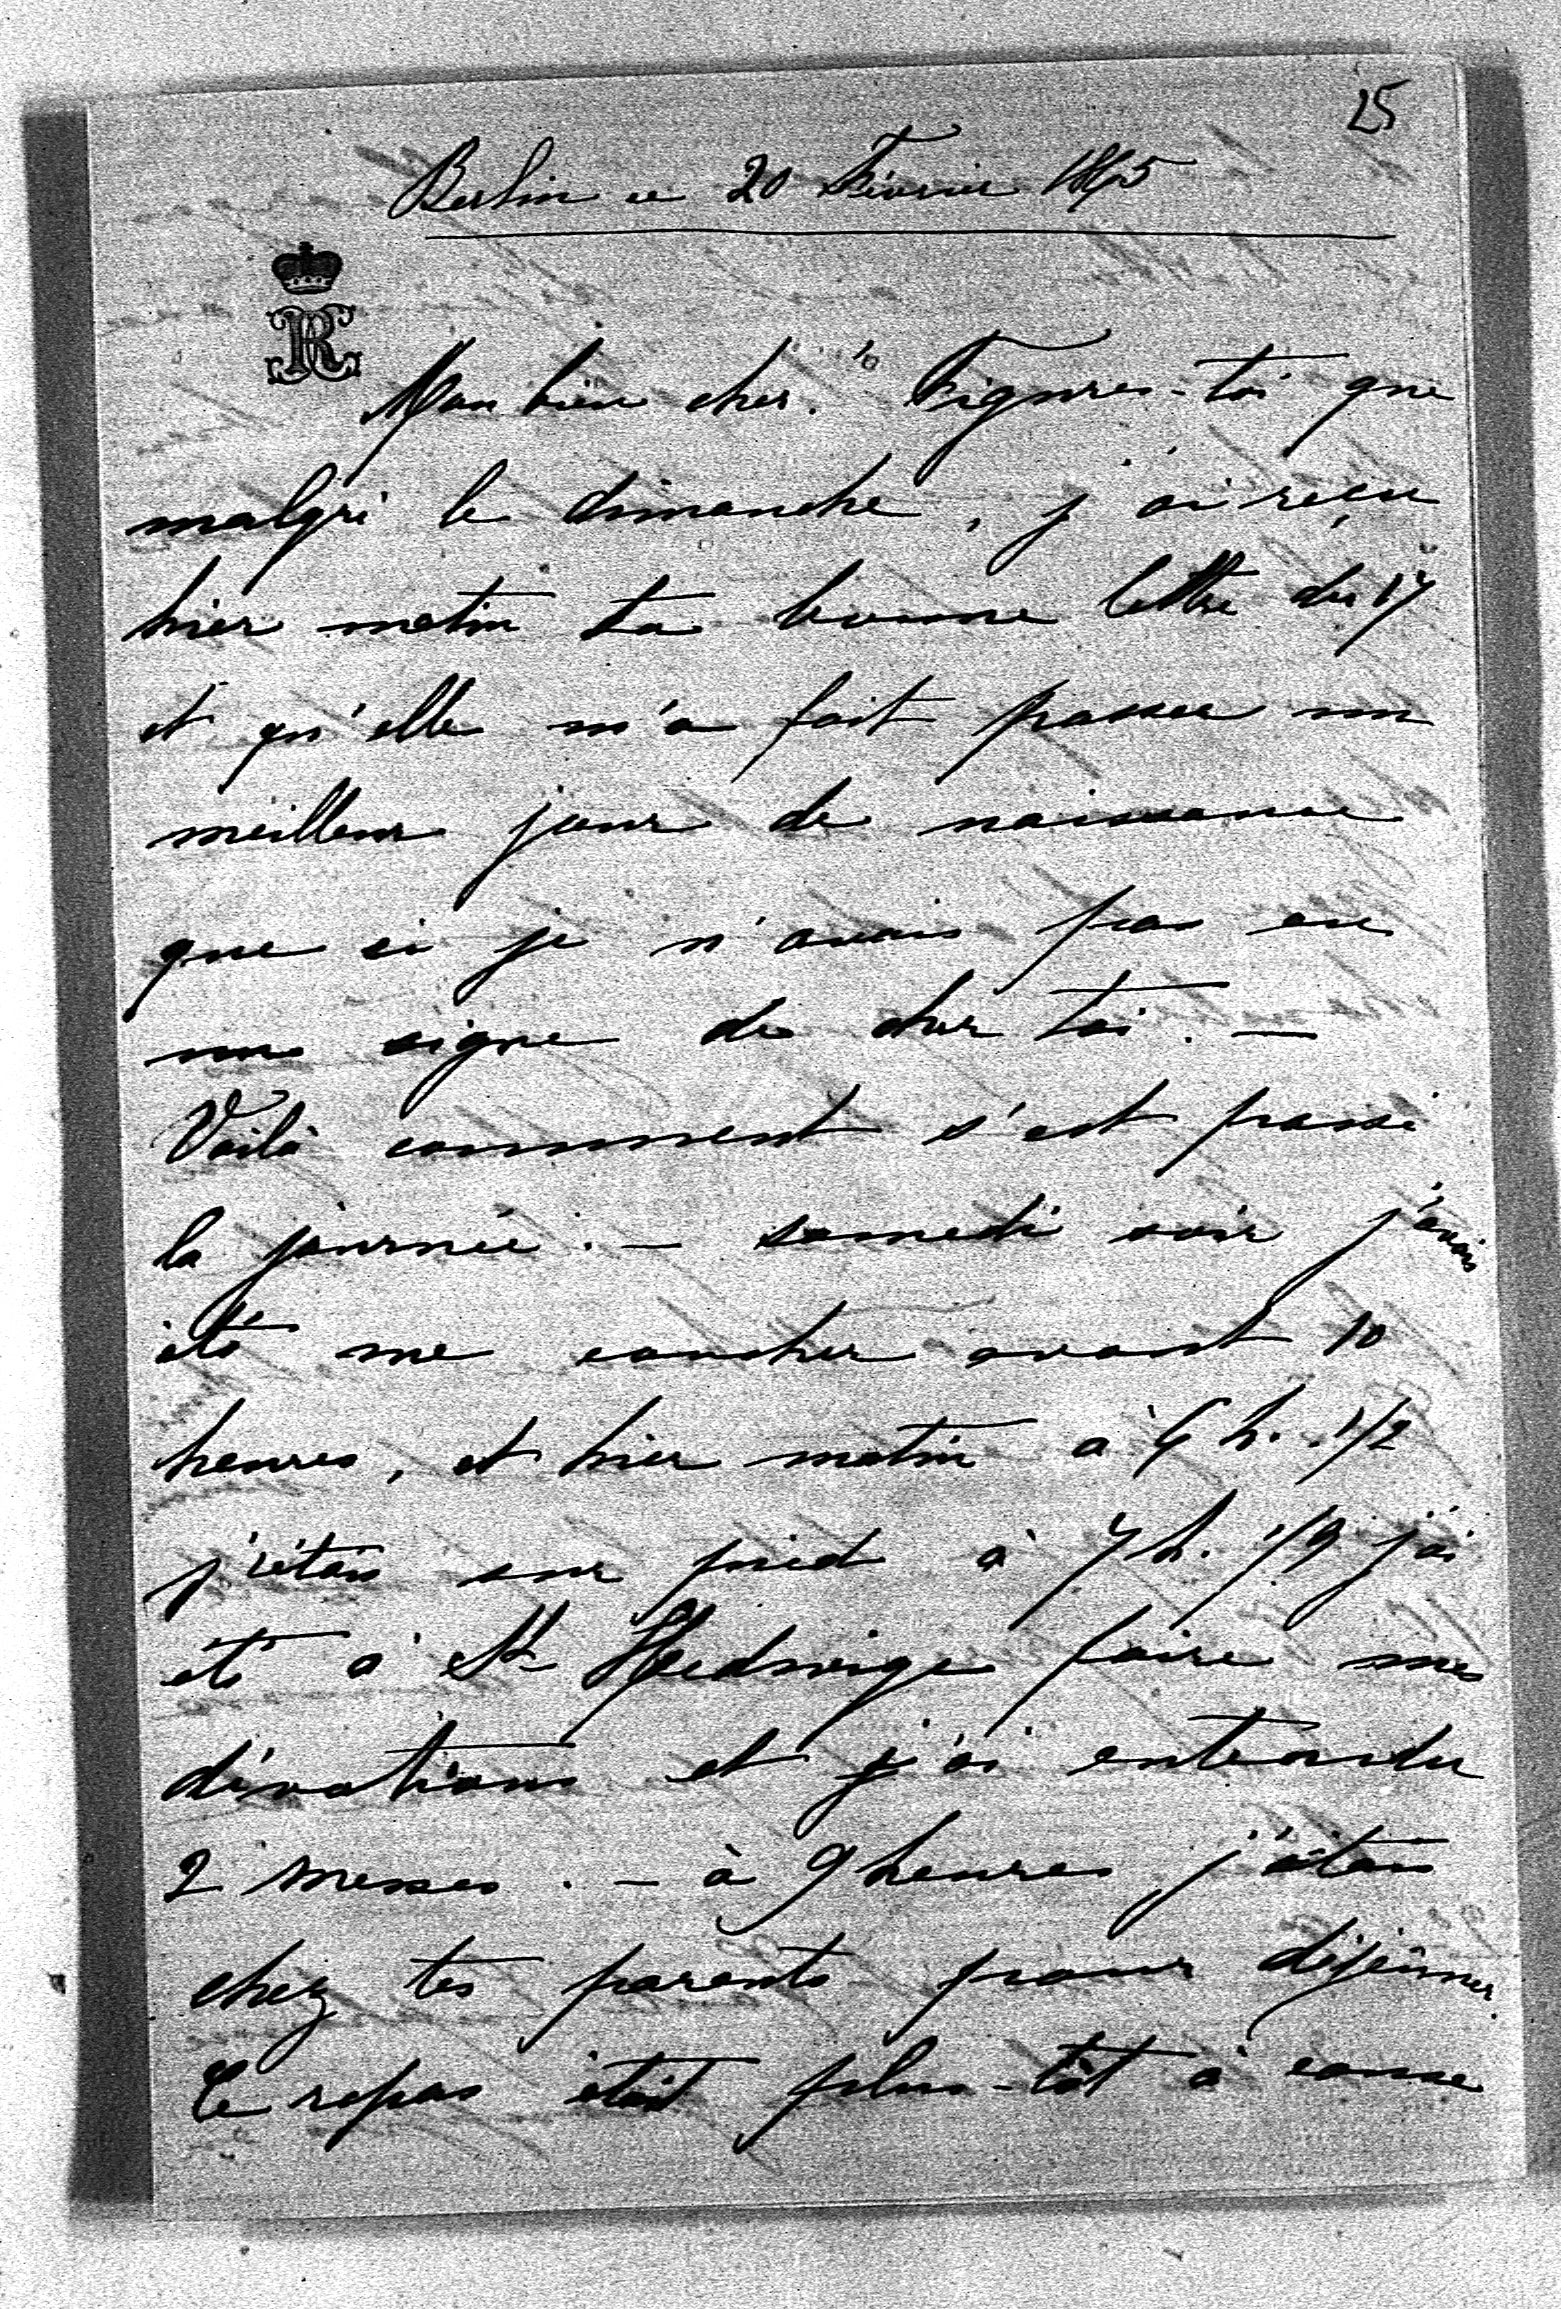 25
Berlin ce 20 Février 1865
Mon bien cher! Figures-toi que
malgré le dimanche, j'ai reçu
hier matin ta bonne lettre du 17
et qu'elle m'a fait passer un
meilleur jour de naissance
que si je n'avais pas eu
un signe de cher toi. —
Voilà comment s'est passé
la journée: — samedi soir j'avais
été me coucher avant 10
heures, et hier matin à 6 h. 1/2
j'étais sur pied à 7 h. 1/2 j'ai
été à St Hedwige faire mes
dévotions et j'ai entendu
2 messes. — à 9 heures j'étais
chez tes parents pour déjeûner.
Ce repas était plus-tôt à cause